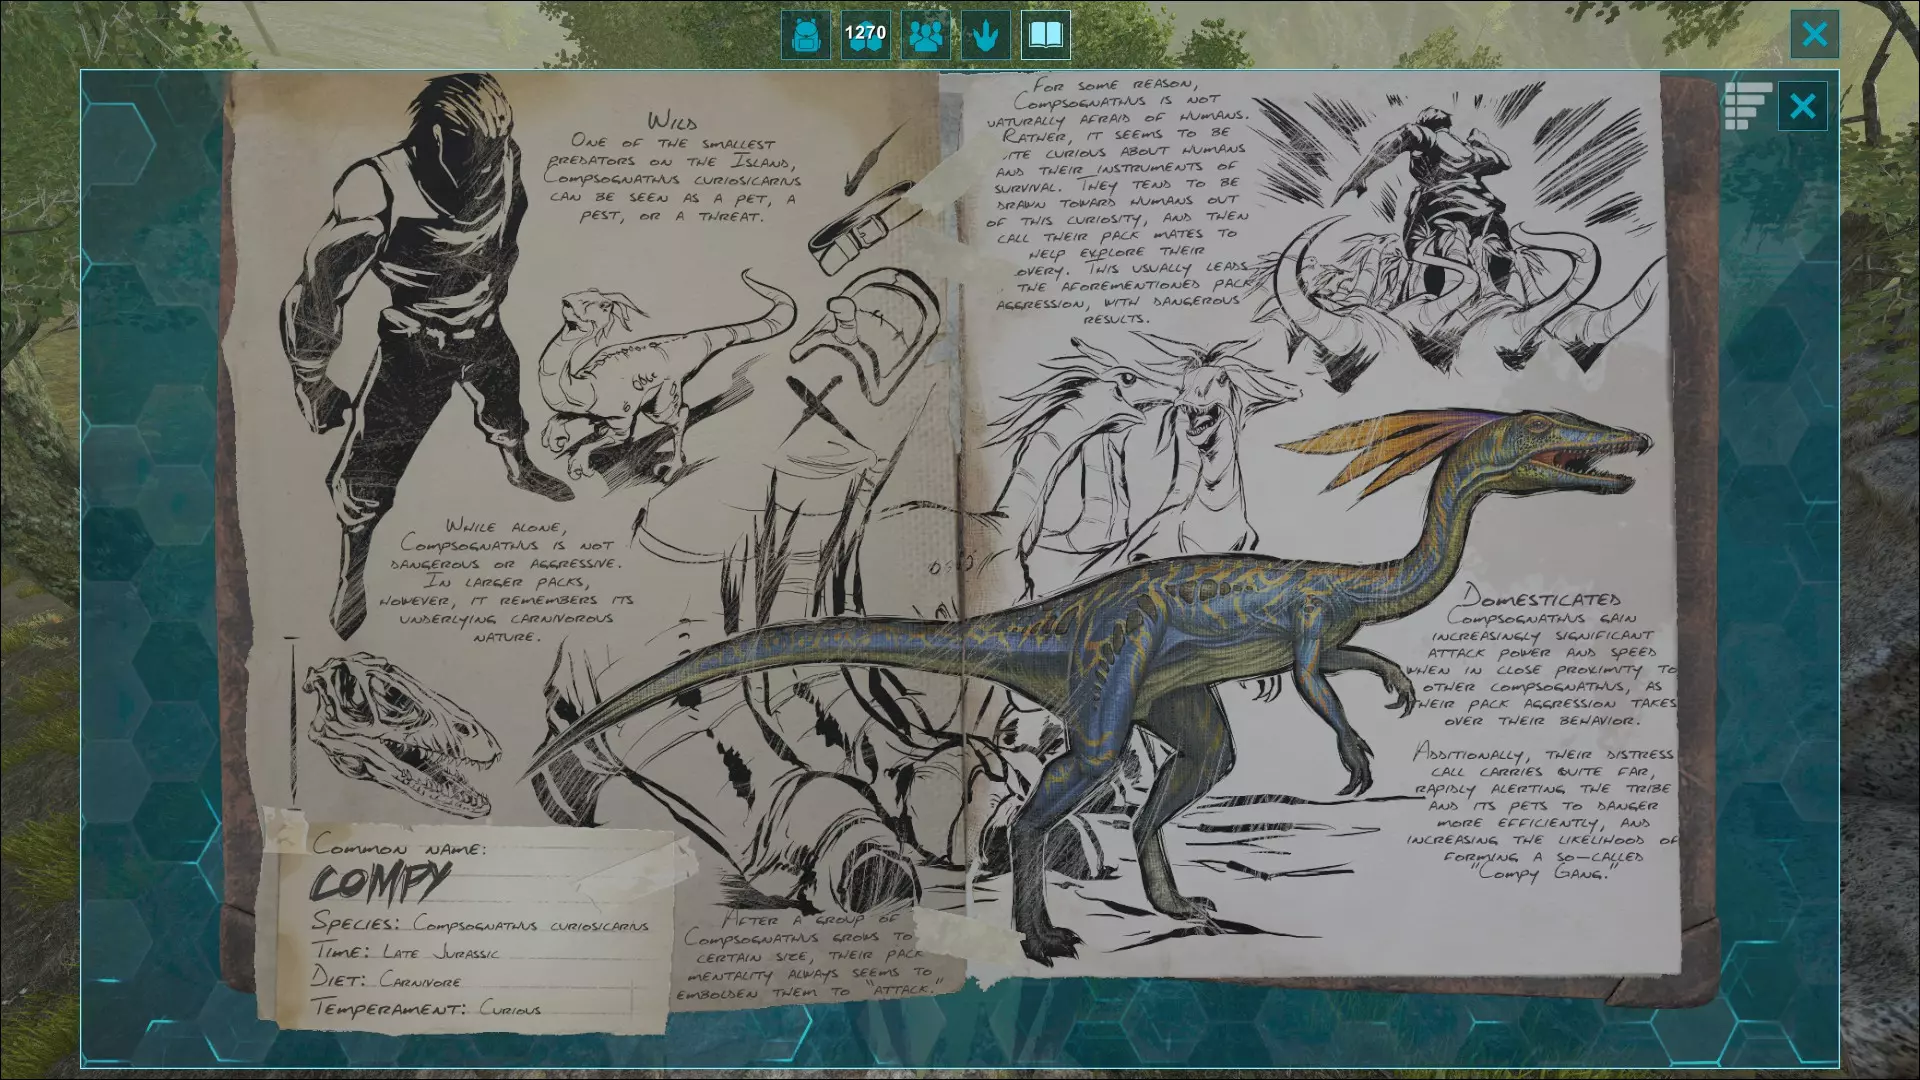 1270
Wild
One of the smallest
predators on the Island,
Compsognathus curiosicarius
can be seen as a pet, a
pest, or a threat.
While alone,
Compsognathus is not
dangerous or aggressive.
In larger packs,
however, it remembers its
underlying carnivorous
nature.
Common name:
COMPY
Species: Compsognathus curiosicarius
Time: Late Jurassic
Diet: Carnivore
Temperament: Curious
After a group of
Compsognathus grows to
certain size, their pack
mentality always seems to
embolden them to "attack."
For some reason,
Compsognathus is not
naturally afraid of humans.
Rather, it seems to be
ite curious about humans
and their instruments of
survival. They tend to be
drawn toward humans out
of this curiosity, and then
call their pack mates to
help explore their
overy. This usually leads
the aforementioned pack
aggression, with dangerous
results.
Domesticated
Compsognathus gain
increasingly significant
attack power and speed
when in close proximity to
other Compsognathus, as
their pack aggression takes
over their behavior.
Additionally, their distress
call carries quite far,
rapidly alerting the tribe
and its pets to danger
more efficiently, and
increasing the likelihood of
forming a so-called
"Compy Gang."